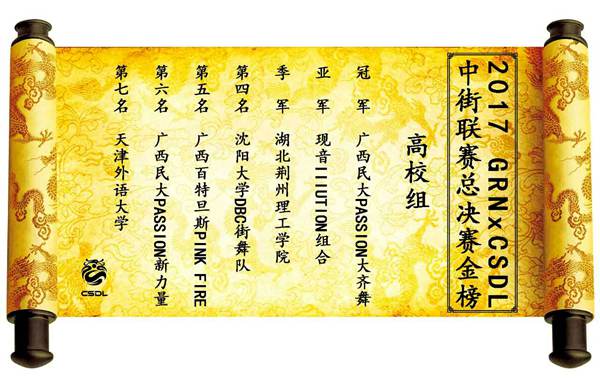 2017 GRNxCSDL
中街联赛总决赛金榜
高校组
冠 军 广西民大PASSION大齐舞
亚 军 现音IIIUTION组合
季 军 湖北荆州理工学院
第四名 沈阳大学DBC街舞队
第五名 广西百特旦斯PINK FIRE
第六名 广西民大PASSION新力量
第七名 天津外语大学
CSDL